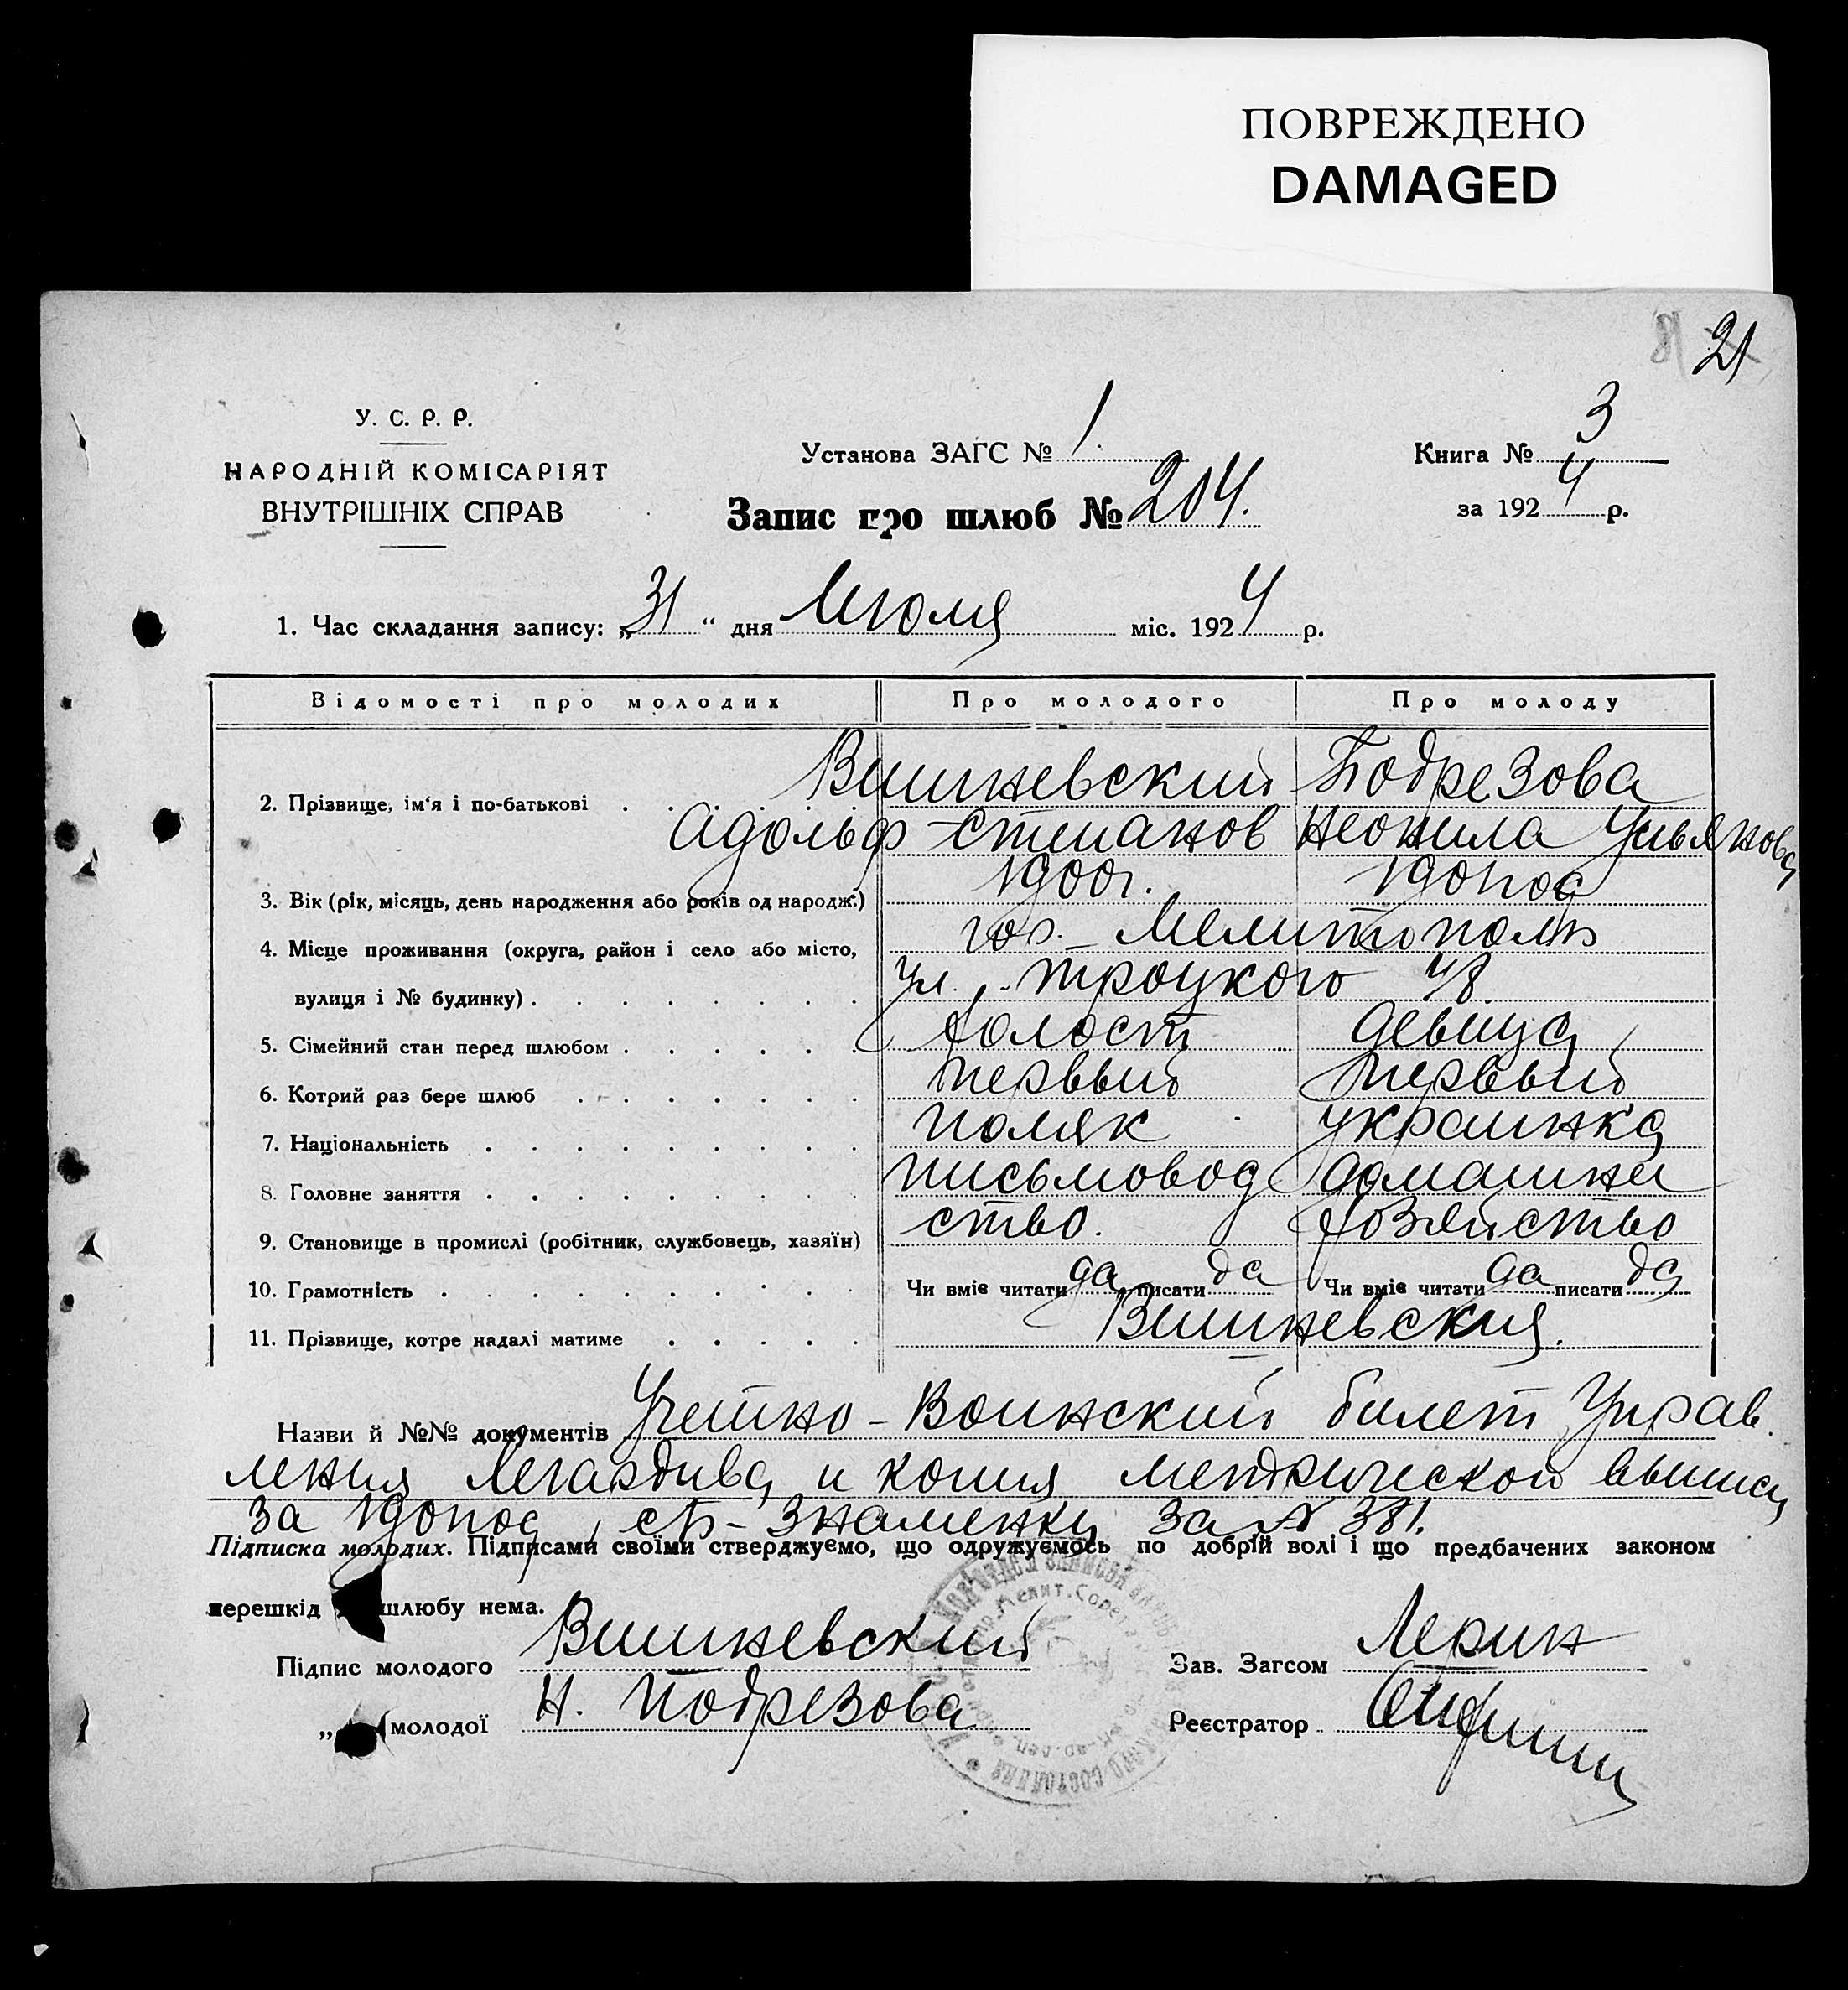 ПОВРЕЖДЕНО
DAMAGED
21
У. С. Р. Р.
НАРОДНІЙ КОМІСАРІЯТ
ВНУТРІШНІХ СПРАВ
Установа ЗАГС № 1.
Книга № 3
за 1924 р.
Запис про шлюб № 204.
1. Час складання запису: „31“ дня Июля міс. 1924 р.
Відомості про молодих Про молодого Про молоду
2. Прізвище, ім'я і по-батькові Вишневский Подрезова
Адольф Степанов Неонила Ульянова
3. Вік (рік, місяць, день народження або років од народж.) 1900г. 190 год
4. Місце проживання (округа, район і село або місто, гор. Мелитополь
вулиця і № будинку) ул. Троцкого 48.
5. Сімейний стан перед шлюбом холост девица
6. Котрий раз бере шлюб первый первый
7. Національність поляк украинка
8. Головне заняття письмовод домашнее
9. Становище в промислі (робітник, службовець, хазяїн) ство. хозяйство
10. Грамотність Чи вміє читати да писати да Чи вміє читати да писати да
11. Прізвище, котре надалі матиме Вишневския.
Назви й №№ документів Учетно-Воинский билет Управ.
ления и копия метрической выписи
за год с. Знаменки за № 381.
Підписка молодих. Підписами своїми стверджуємо, що одружуємось по добрій волі і що предбачених законом
перешкід шлюбу нема.
Підпис молодого Вишневский
Зав. Загсом Лерин
„ молодої Н. Подрезова
Реєстратор